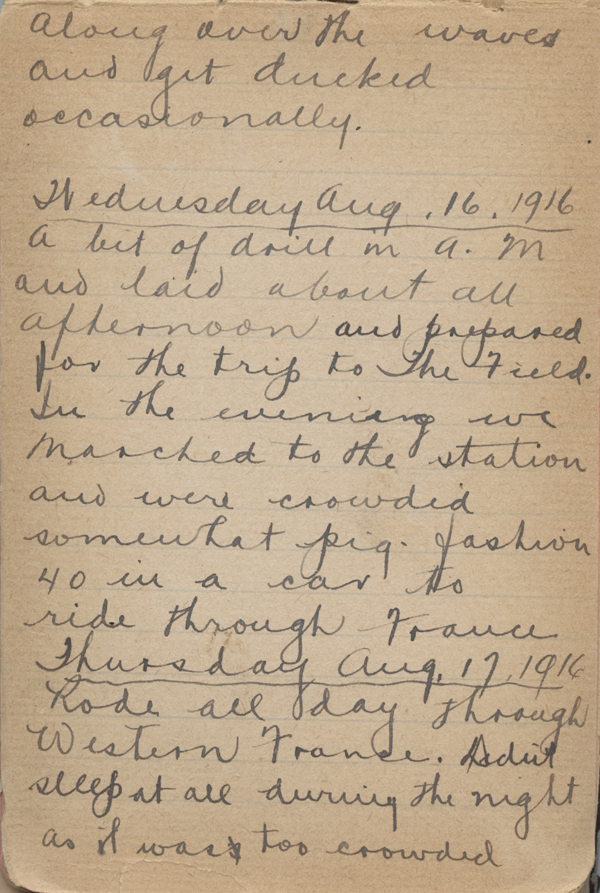 along over the waves
and get ducked
occasionally.
Wednesday Aug. 16. 1916
A bit of drill in A. M
and laid about all
afternoon and prepared
for the trip to The Field.
In the evening we
marched to the station
and were crowded
somewhat pig. fashion
40 in a car to
ride through France
Thursday Aug. 17. 1916
Rode all day through
Western France. Didnt
sleep at all during the night
as it was too crowded